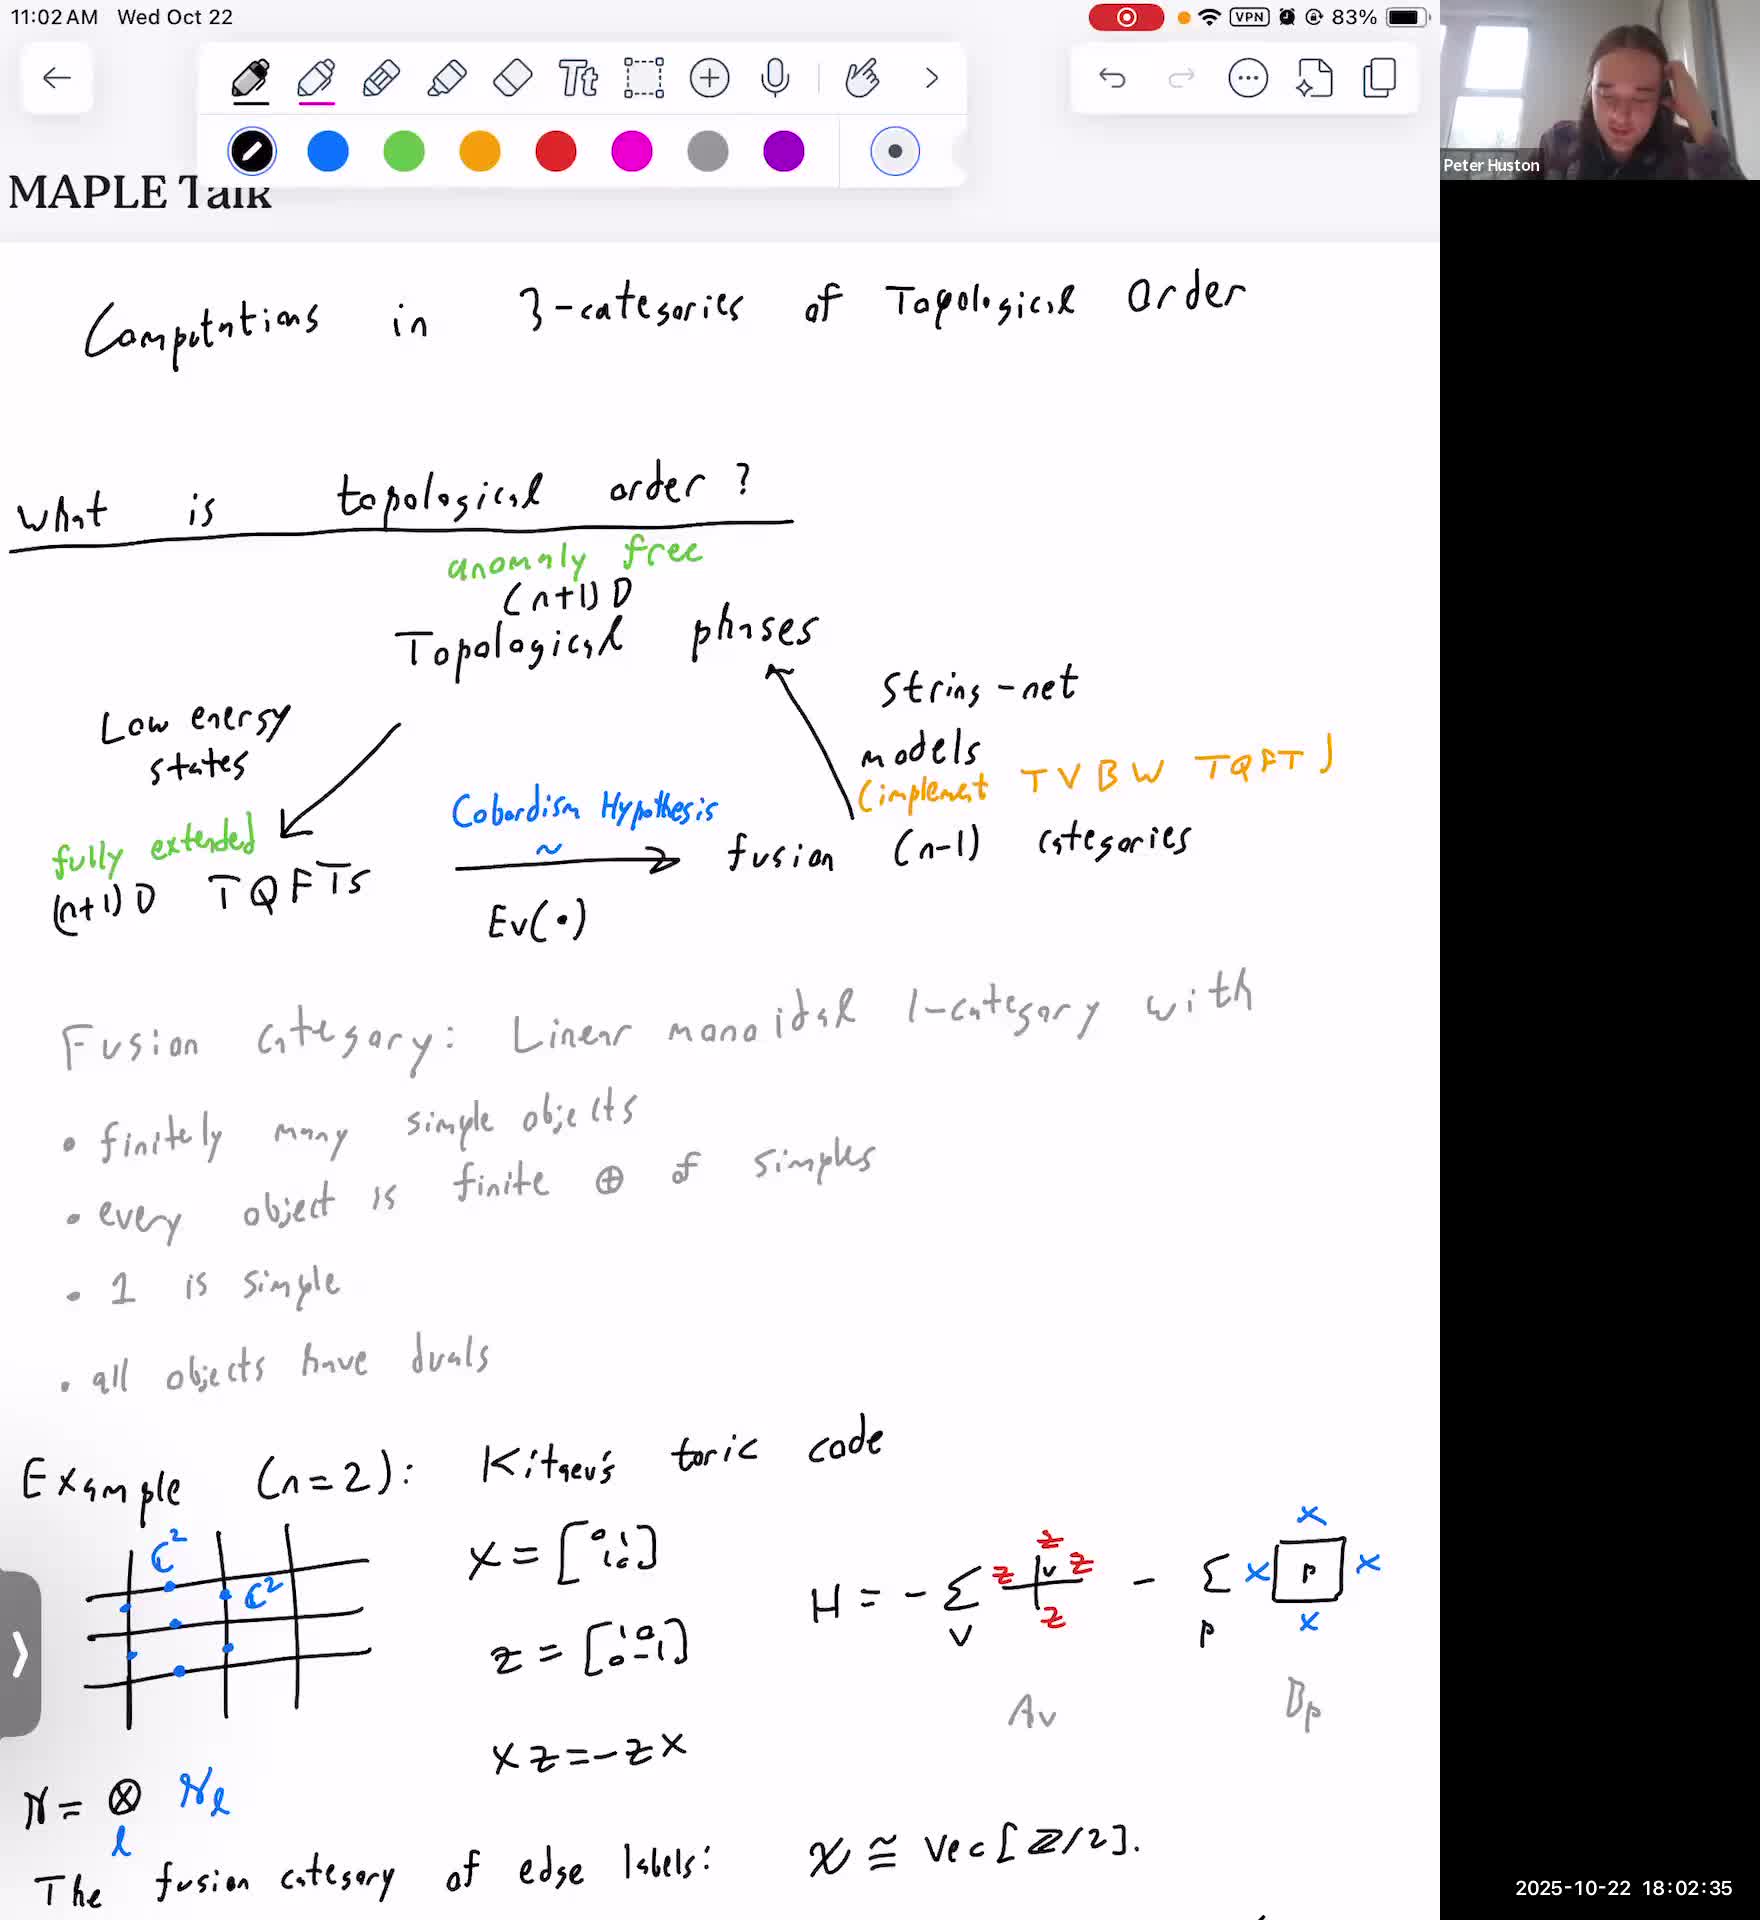 11:02 AM Wed Oct 22
VPN 83%
Tt
MAPLE Talk
Peter Huston
Computations in 3-categories of Topological Order
What is topological order?
anomaly free
(n+1)D
Topological phases
Low energy
states
String-net
models
(implement TVBW TQFT)
Cobordism Hypothesis
~
fully extended
(n+1)D TQFTs
fusion (n-1) categories
Ev(•)
Fusion category: Linear monoidal 1-category with
• finitely many simple objects
• every object is finite ⊕ of simples
• 1 is simple
• all objects have duals
Example (n=2): Kitaev's toric code
ℂ² ℂ²
X = [0 1; 1 0]
Z = [1 0; 0 -1]
XZ = -ZX
H = - Σ_v Z Z v Z Z - Σ_p X X p X X
A_v B_p
ℋ = ⊗_l ℋ_l
The fusion category of edge labels: 𝒳 ≅ Vec[ℤ/2].
2025-10-22 18:02:35